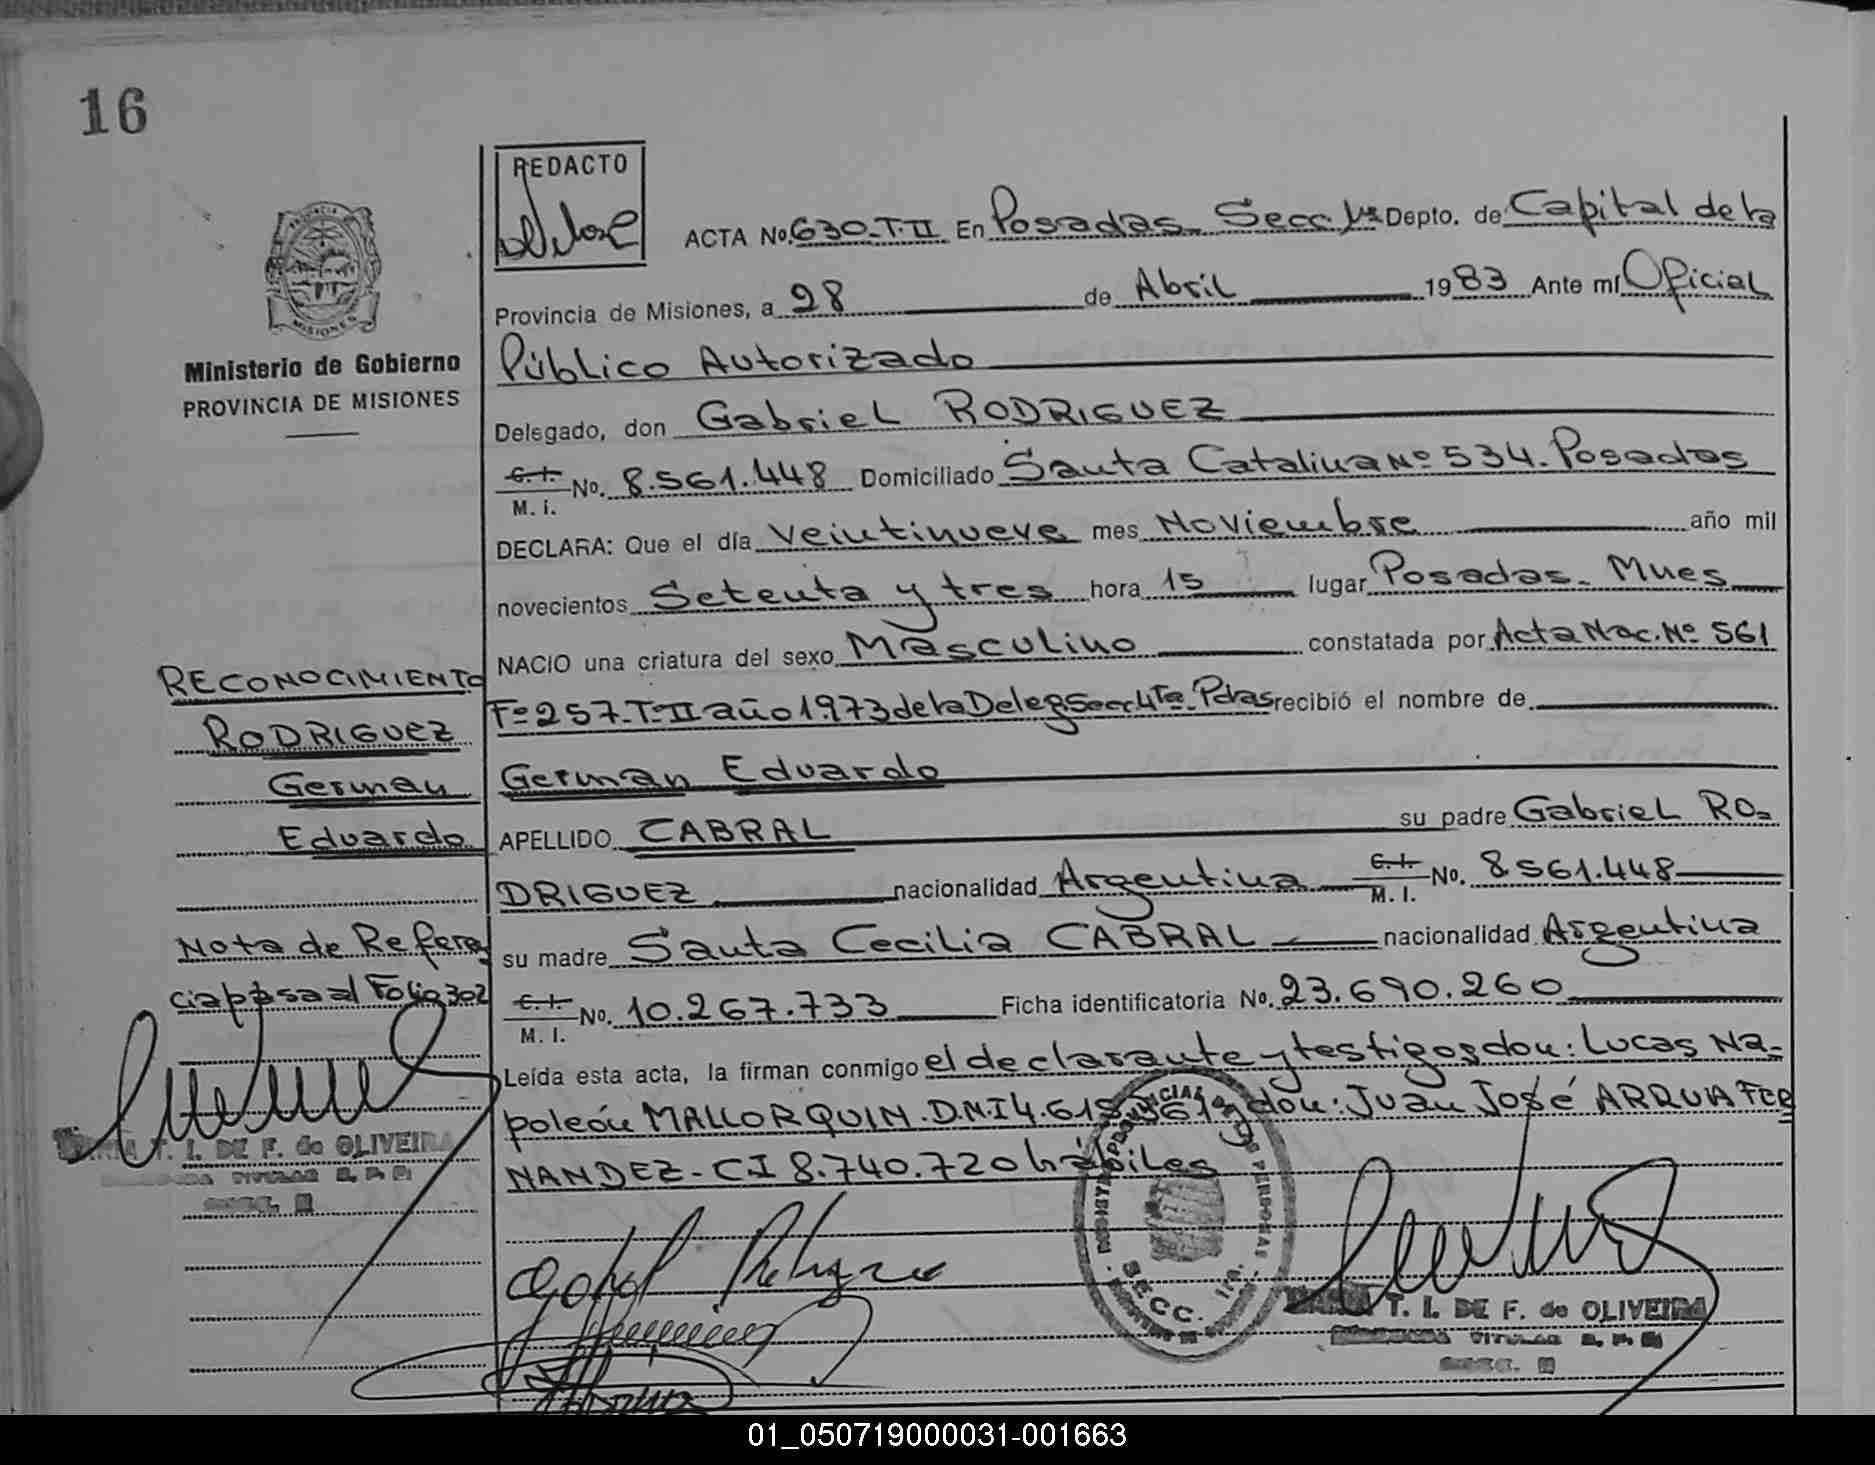 16
REDACTO
ACTA No. 630-T-II En Posadas Secc 1ra Depto. de Capital de la
Provincia de Misiones, a 28 de Abril 1983 Ante mí Oficial
Público Autorizado
Ministerio de Gobierno
PROVINCIA DE MISIONES
Delegado, don Gabriel RODRIGUEZ
C. I. M. I. No. 8.561.448 Domiciliado Santa Catalina Nº 534. Posadas
DECLARA: Que el día veintinueve mes Noviembre año mil
novecientos Setenta y tres hora 15 lugar Posadas. Mnes
NACIO una criatura del sexo Masculino constatada por Acta Nac. Nº 561
Fº 257-Tº II año 1973 de la Deleg Secc 4ta Pdas recibió el nombre de
German Eduardo
APELLIDO CABRAL su padre Gabriel RO=
DRIGUEZ nacionalidad Argentina C. I. M. I. No. 8561.448
su madre Santa Cecilia CABRAL nacionalidad Argentina
C. I. M. I. No. 10.267.733 Ficha identificatoria No. 23.690.260
Leída esta acta, la firman conmigo el declarante y testigos don: Lucas Na-
poleón MALLORQUIN. D.N.I 4.619 y don: Juan José ARRUA FER
NANDEZ-CI 8.740.720 hábiles
RECONOCIMIENTO
RODRIGUEZ
German
Eduardo
Nota de Referen
cia pasa al Folio 302
T. I. DE F. de OLIVEIRA
TITULAR
SECC.
SECC. 1ra.
T. I. DE F. de OLIVEIRA
TITULAR
SECC.
01_050719000031-001663